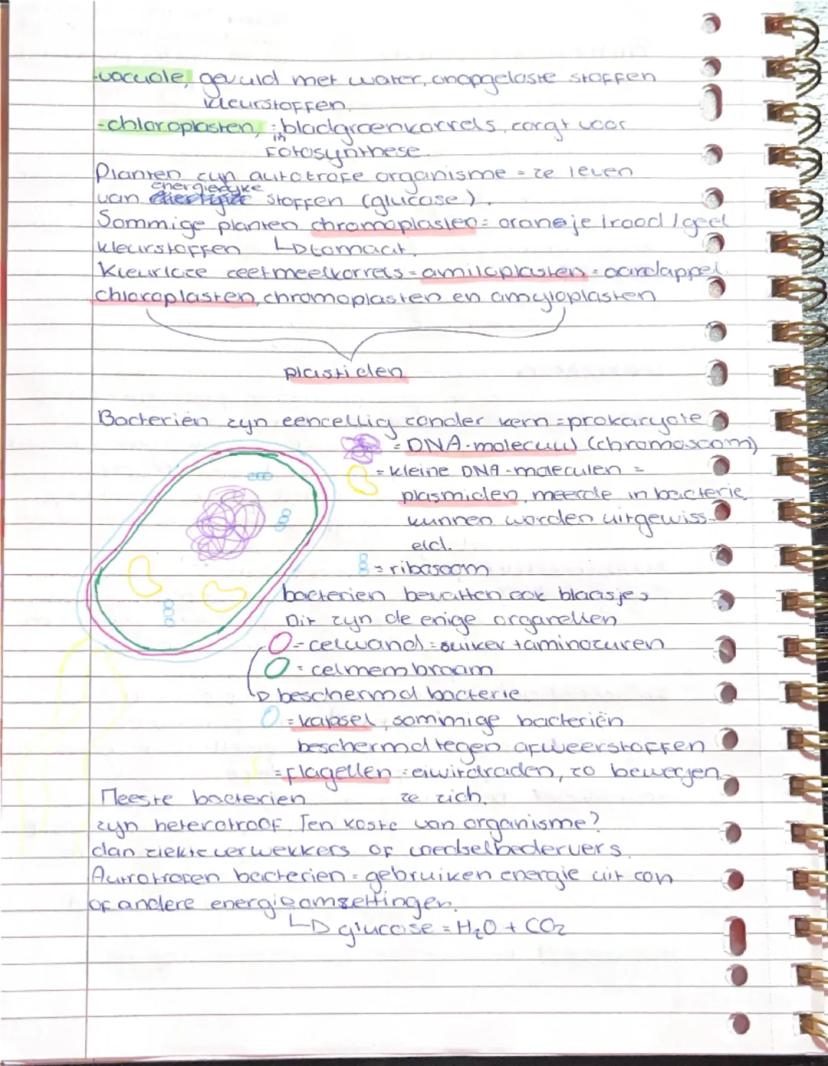 -vacuole, gevuld met water, onopgeloste stoffen
kleurstoffen.
-chloroplasten, = bladgroenkorrels, zorgt voor
in
Fotosynthese
Planten zijn autotrofe organisme = ze leven
energierijke
van stoffen (glucose).
Sommige planten chromoplasten = oranje/rood/geel
kleurstoffen ↳ tomaat.
Kleurloze zetmeelkorrels = amiloplasten = aardappel.
chloroplasten, chromoplasten en amyloplasten
plastiden
Bacteriën zijn eencellig zonder kern = prokaryote
= DNA-molecuul (chromosoom)
= kleine DNA-moleculen =
plasmiden, meerde in bacterie,
kunnen worden uitgewiss-
eld.
= ribosoom
bacterien bevatten ook blaasjes
Dit zijn de enige organellen
= celwand = suiker + aminozuren
= celmembraam
↳ beschermd bacterie
= kapsel, sommige bacteriën
beschermd tegen afweerstoffen
= flagellen = eiwitdraden, zo bewegen
Meeste bacterien ze zich.
zijn heterotroof. Ten koste van organisme?
dan ziekteverwekkers of voedselbedervers.
Autotrofen bacterien = gebruiken energie uit zon
of andere energieomzettingen.
↳ glucose = H₂O + CO₂